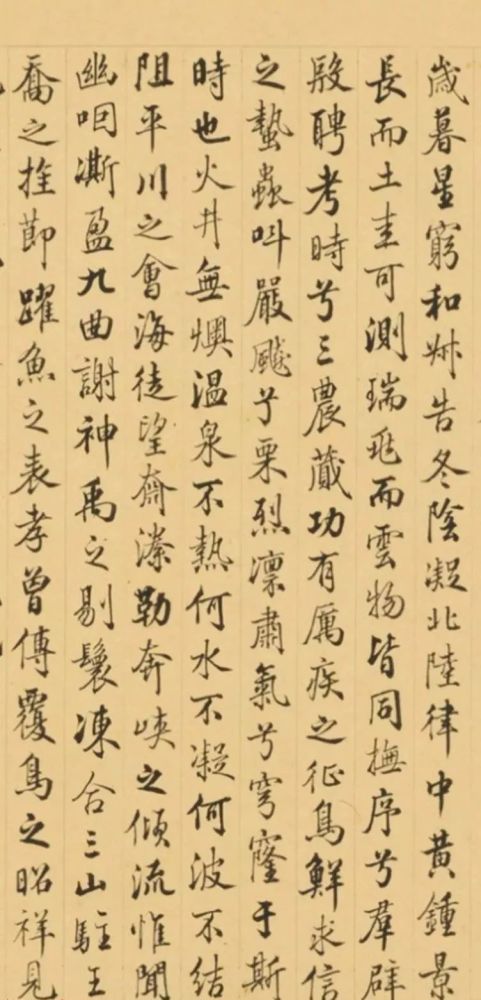 歲暮星窮和叔告冬陰凝北陸律中黃鍾景
長而土圭可測瑞飛而雲物皆同撫序兮羣辟
殷聘考時兮三農蔵功有厲疾之征鳥鮮求信
之蟄蟲叫嚴飈兮栗烈凛肅氣兮穹窿于斯
時也火井無燠温泉不熱何水不凝何波不結
阻平川之會海徒望齋勒奔峽之傾流惟聞
幽咽澌盈九曲謝神禹之剔鬟凍合三山駐王
喬之節躍魚之表孝曾傳覆鳥之昭祥見